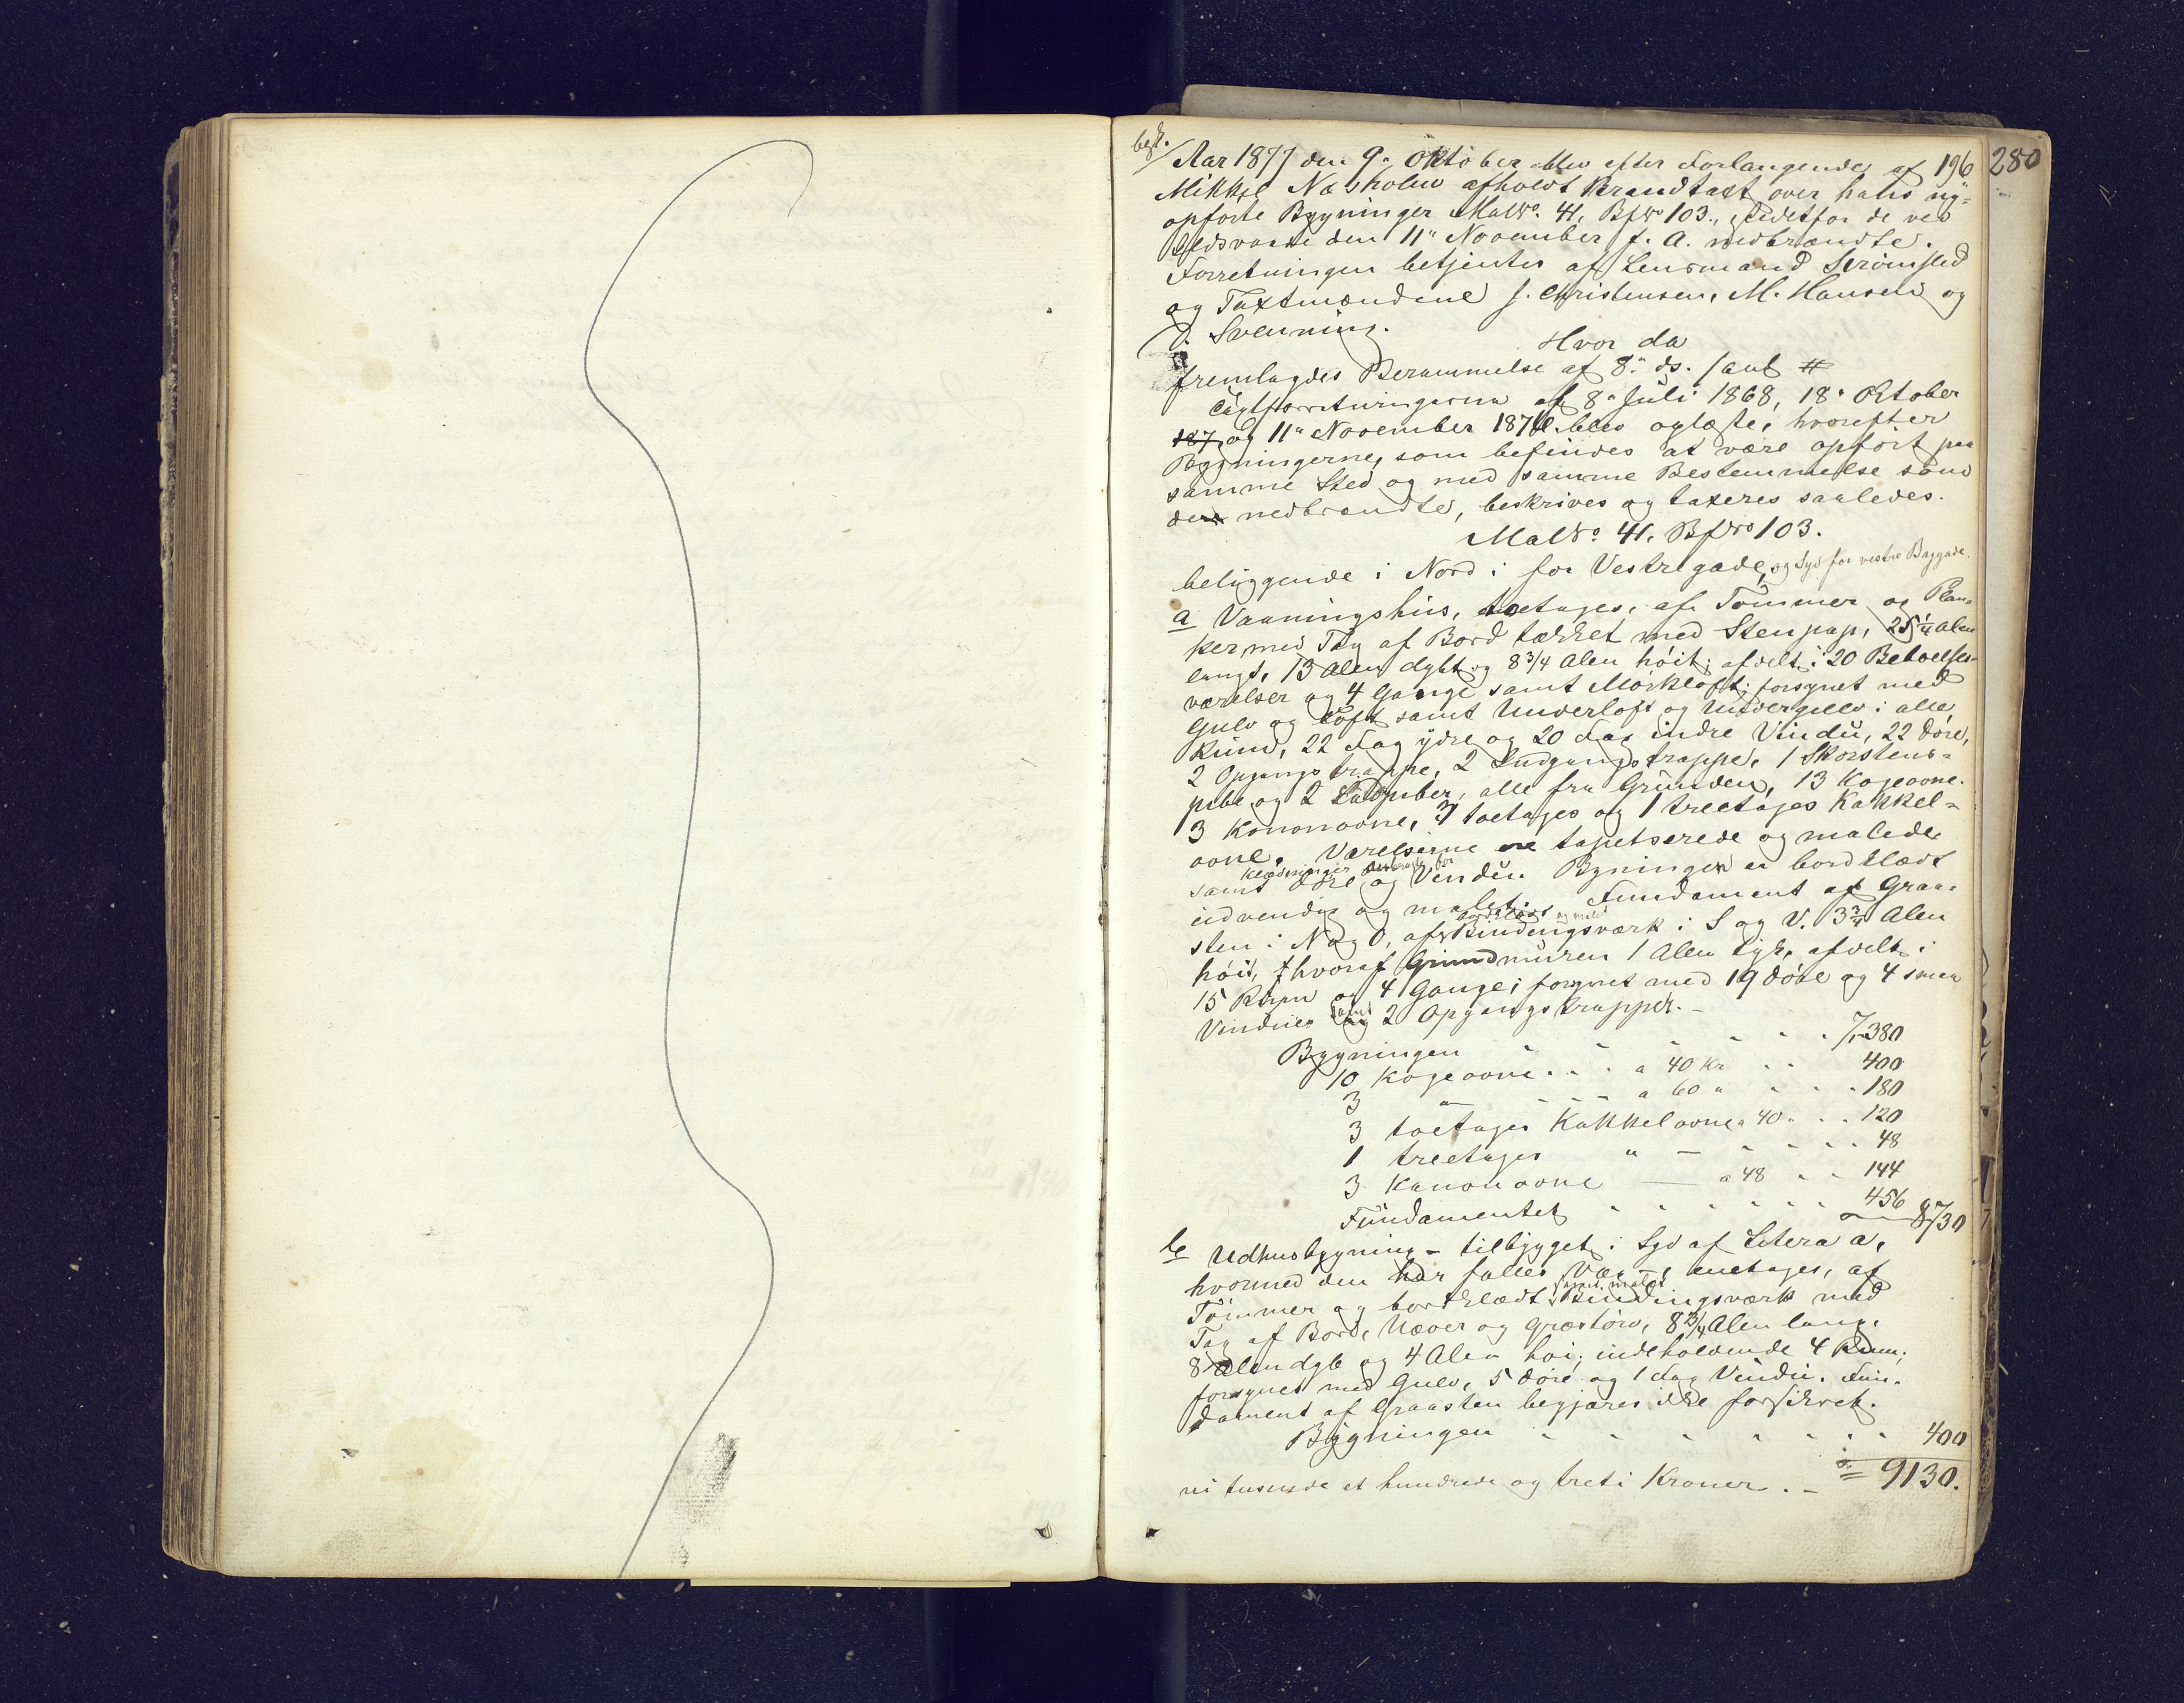 best.
Aar 1877 den 9. Oktober blev efter Forlangende af 196 280
Mikkel Næsholm afholdt Brandtaxt over hans ny-
opførte Bygninger Mat№. 41, Bf№ 103., istedetfor de ved
Ildsvaade den 11" November f. A. nedbrændte.
Forretningen betjentes af Lensmand Strømsted
og Taxtmændene J. Christensen, M. Hansen og
D. Svenning.
Hvor da
fremlagdes Berammelse af 8" ds. samt #
Taxtforretningerne af 8" Juli 1868, 18" Oktober
187 og 11" November 1876 blev oplæste, hvorefter
Bygningerne, som befindes at være opført paa
samme Sted og med samme Bestemmelse som
de nedbrændte, beskrives og taxeres saaledes.
Mat№. 41. Bf№ 103.
beliggende i Nord i for Vestregade, og Syd for vestre Baggade.
a Vaaningshus, toetages, af Tømmer og Plan-
ker med Tag af Bord tækket med Stenpap, 25 1/4 Alen
langt, 13 Alen dybt og 8 3/4 Alen høit; afdelt i 20 Beboelses-
værelser og 4 Gange samt Mørkloft; forsynet med
Gulv og Loft samt Underloft og Undergulv i alle
Rum, 22 Fag ydre og 20 Fag indre Vindu, 22 Døre,
2 Opgangstrappe, 2 Indgangstrappe, 1 Skorstens-
pibe og 2 Luftpiber, alle fra Grunden, 13 Kogeovne.
3 Kanonovne, 3 toetages og 1 treetages Kakkel-
ovne. Værelserne ere tapetserede og malede
samt Døre og Vindu. Bygningen er bordklædt
udvendig og malet. Fundament af Graa-
sten i N og O, af bordklædt og malet Bindingsværk i S og V. 3 3/4 Alen
høit, hvoraf Grundmuren 1 Alen tyk, afdelt i
15 Rum og 4 Gange; forsynet med 19 Døre og 4 smaa
Vinduer samt 2 Opgangstrapper. -
Bygningen 7,380
10 Kogeovne a 40 Kr 400
3 " a 60 " 180
3 toetages Kakkelovne a 40 " 120
1 treetages " 48
3 Kanonovne a 48 144
Fundamentet 456 8730
b Udhusbygning - tilbygget i Syd af Litera a,
hvormed den har fælles Væg -, eenetages, af
Tømmer og bordklædt samt malet Bindingsværk med
Tag af Bord, Næver og Græstørv, 8 3/4 Alen lang,
8 Alen dyb og 4 Alen høi; indeholdende 4 Rum,
forsynet med Gulv, 5 Døre og 1 Fag Vindu. Fun-
dament af Graasten begjæres ikke forsikret.
Bygningen 400
ni tusende et hundrede og treti Kroner. - = 9130.